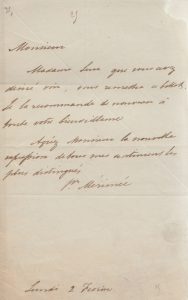 Monsieur
Madame que vous avez
désiré voir, vous remettra ce billet.
Je la recommande de nouveau à
toute votre bienveillance
Agréez Monsieur la nouvelle
expression de tous mes sentiments les
plus distingués
Pr Mérimée
Lundi 2 Février